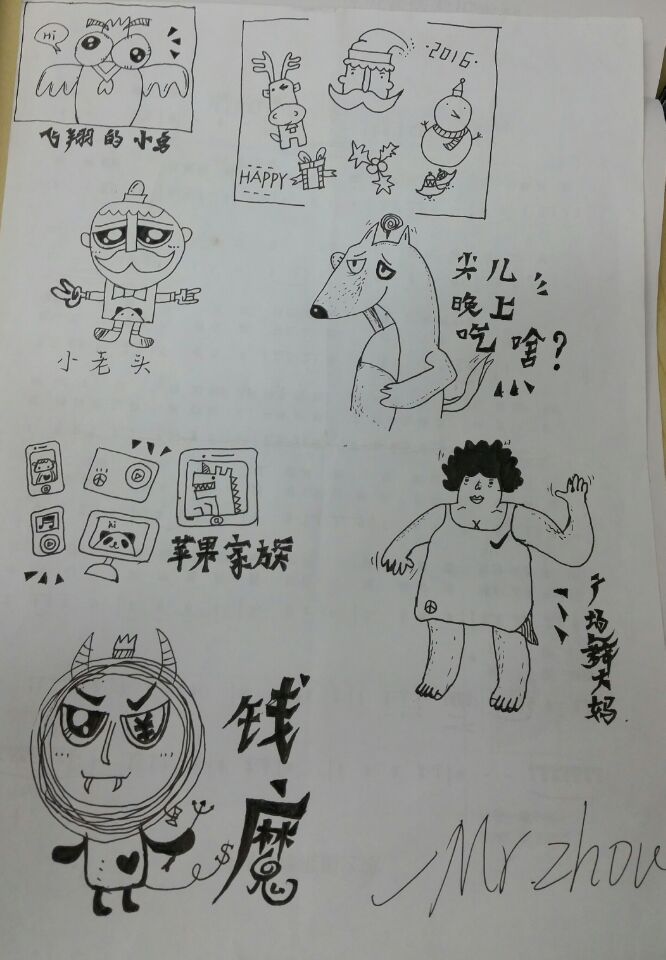 Hi
飞翔的小鸟
2016
HAPPY
小老头
尖儿
晚上
吃啥?
hi
苹果家族
广场舞大妈
¥
钱魔
$
Mr.zhou